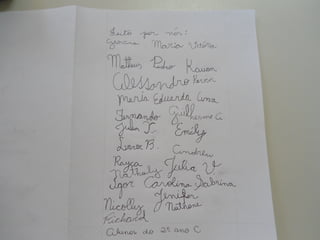 Feito por nós:
Maria Vitória
Matheus Pedro Kauan
Alessandro
Maria Eduarda Ana
Fernando Guilherme C.
Julia T. Emily
B.
Andrei
Rayca Julia V
Nathaly
Igor Carolina Sabrina
Jenifer
Nicolly
Richard
Alunos do 2º ano C